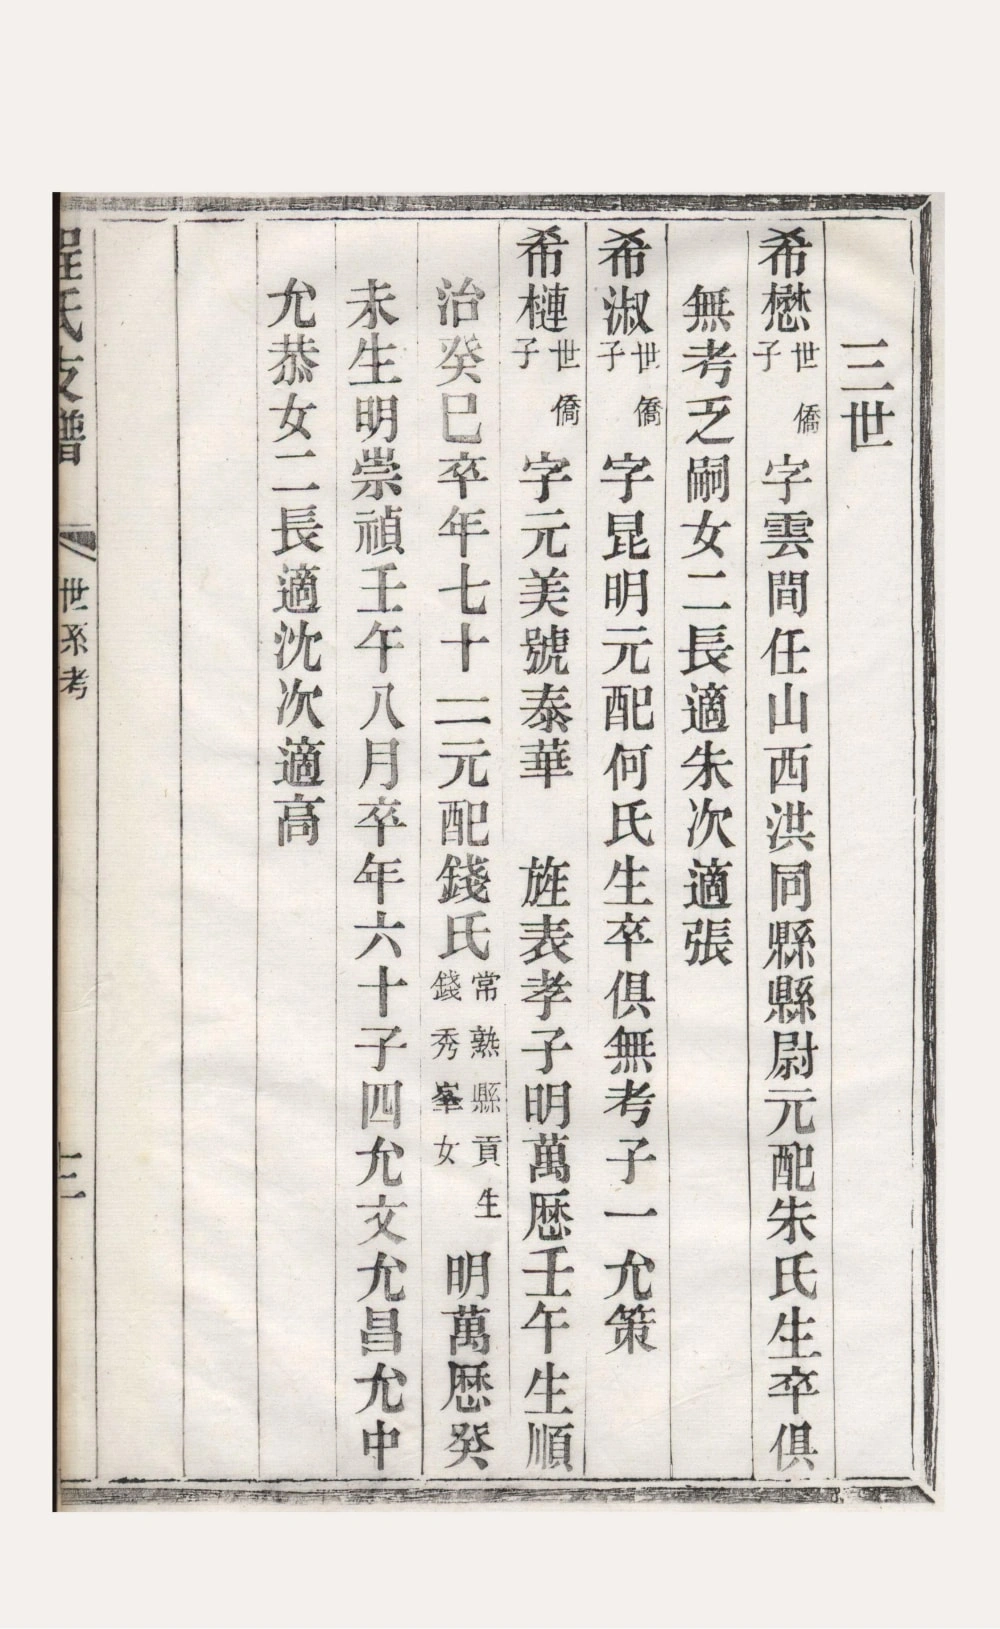 三世
希懋世僑子字雲間任山西洪同縣縣尉元配朱氏生卒俱
無考乏嗣女二長適朱次適張
希淑世僑子字昆明元配何氏生卒俱無考子一允策
希槤世僑子字元美號泰華　旌表孝子明萬歷壬午生順
治癸巳卒年七十二元配錢氏常熟縣貢生錢秀峯女明萬歷癸
未生明崇禎壬午八月卒年六十子四允文允昌允中
允恭女二長適沈次適高
程氏支譜　世系考　三